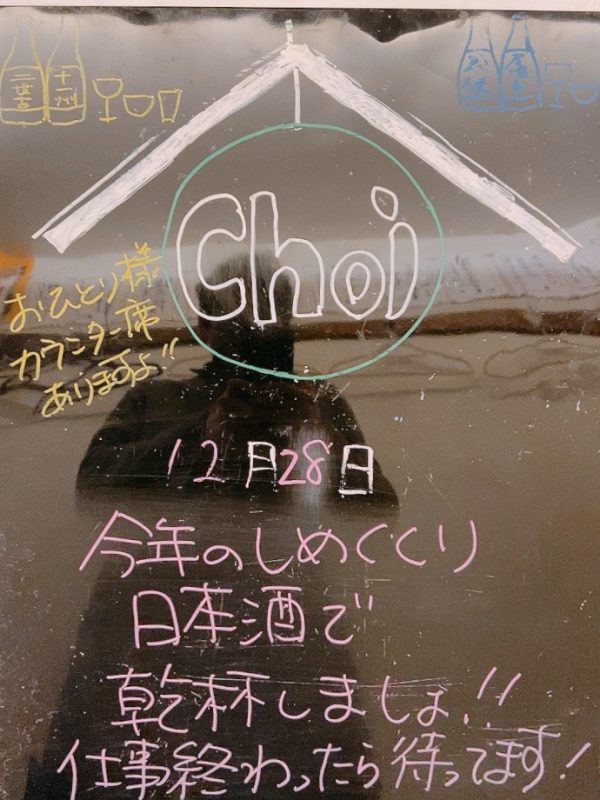 二世古
十一州
Choi
おひとり様
カウンター席
ありますよ!!
12月28日
今年のしめくくり
日本酒で
乾杯しましょ!!
仕事終わったら待ってます!